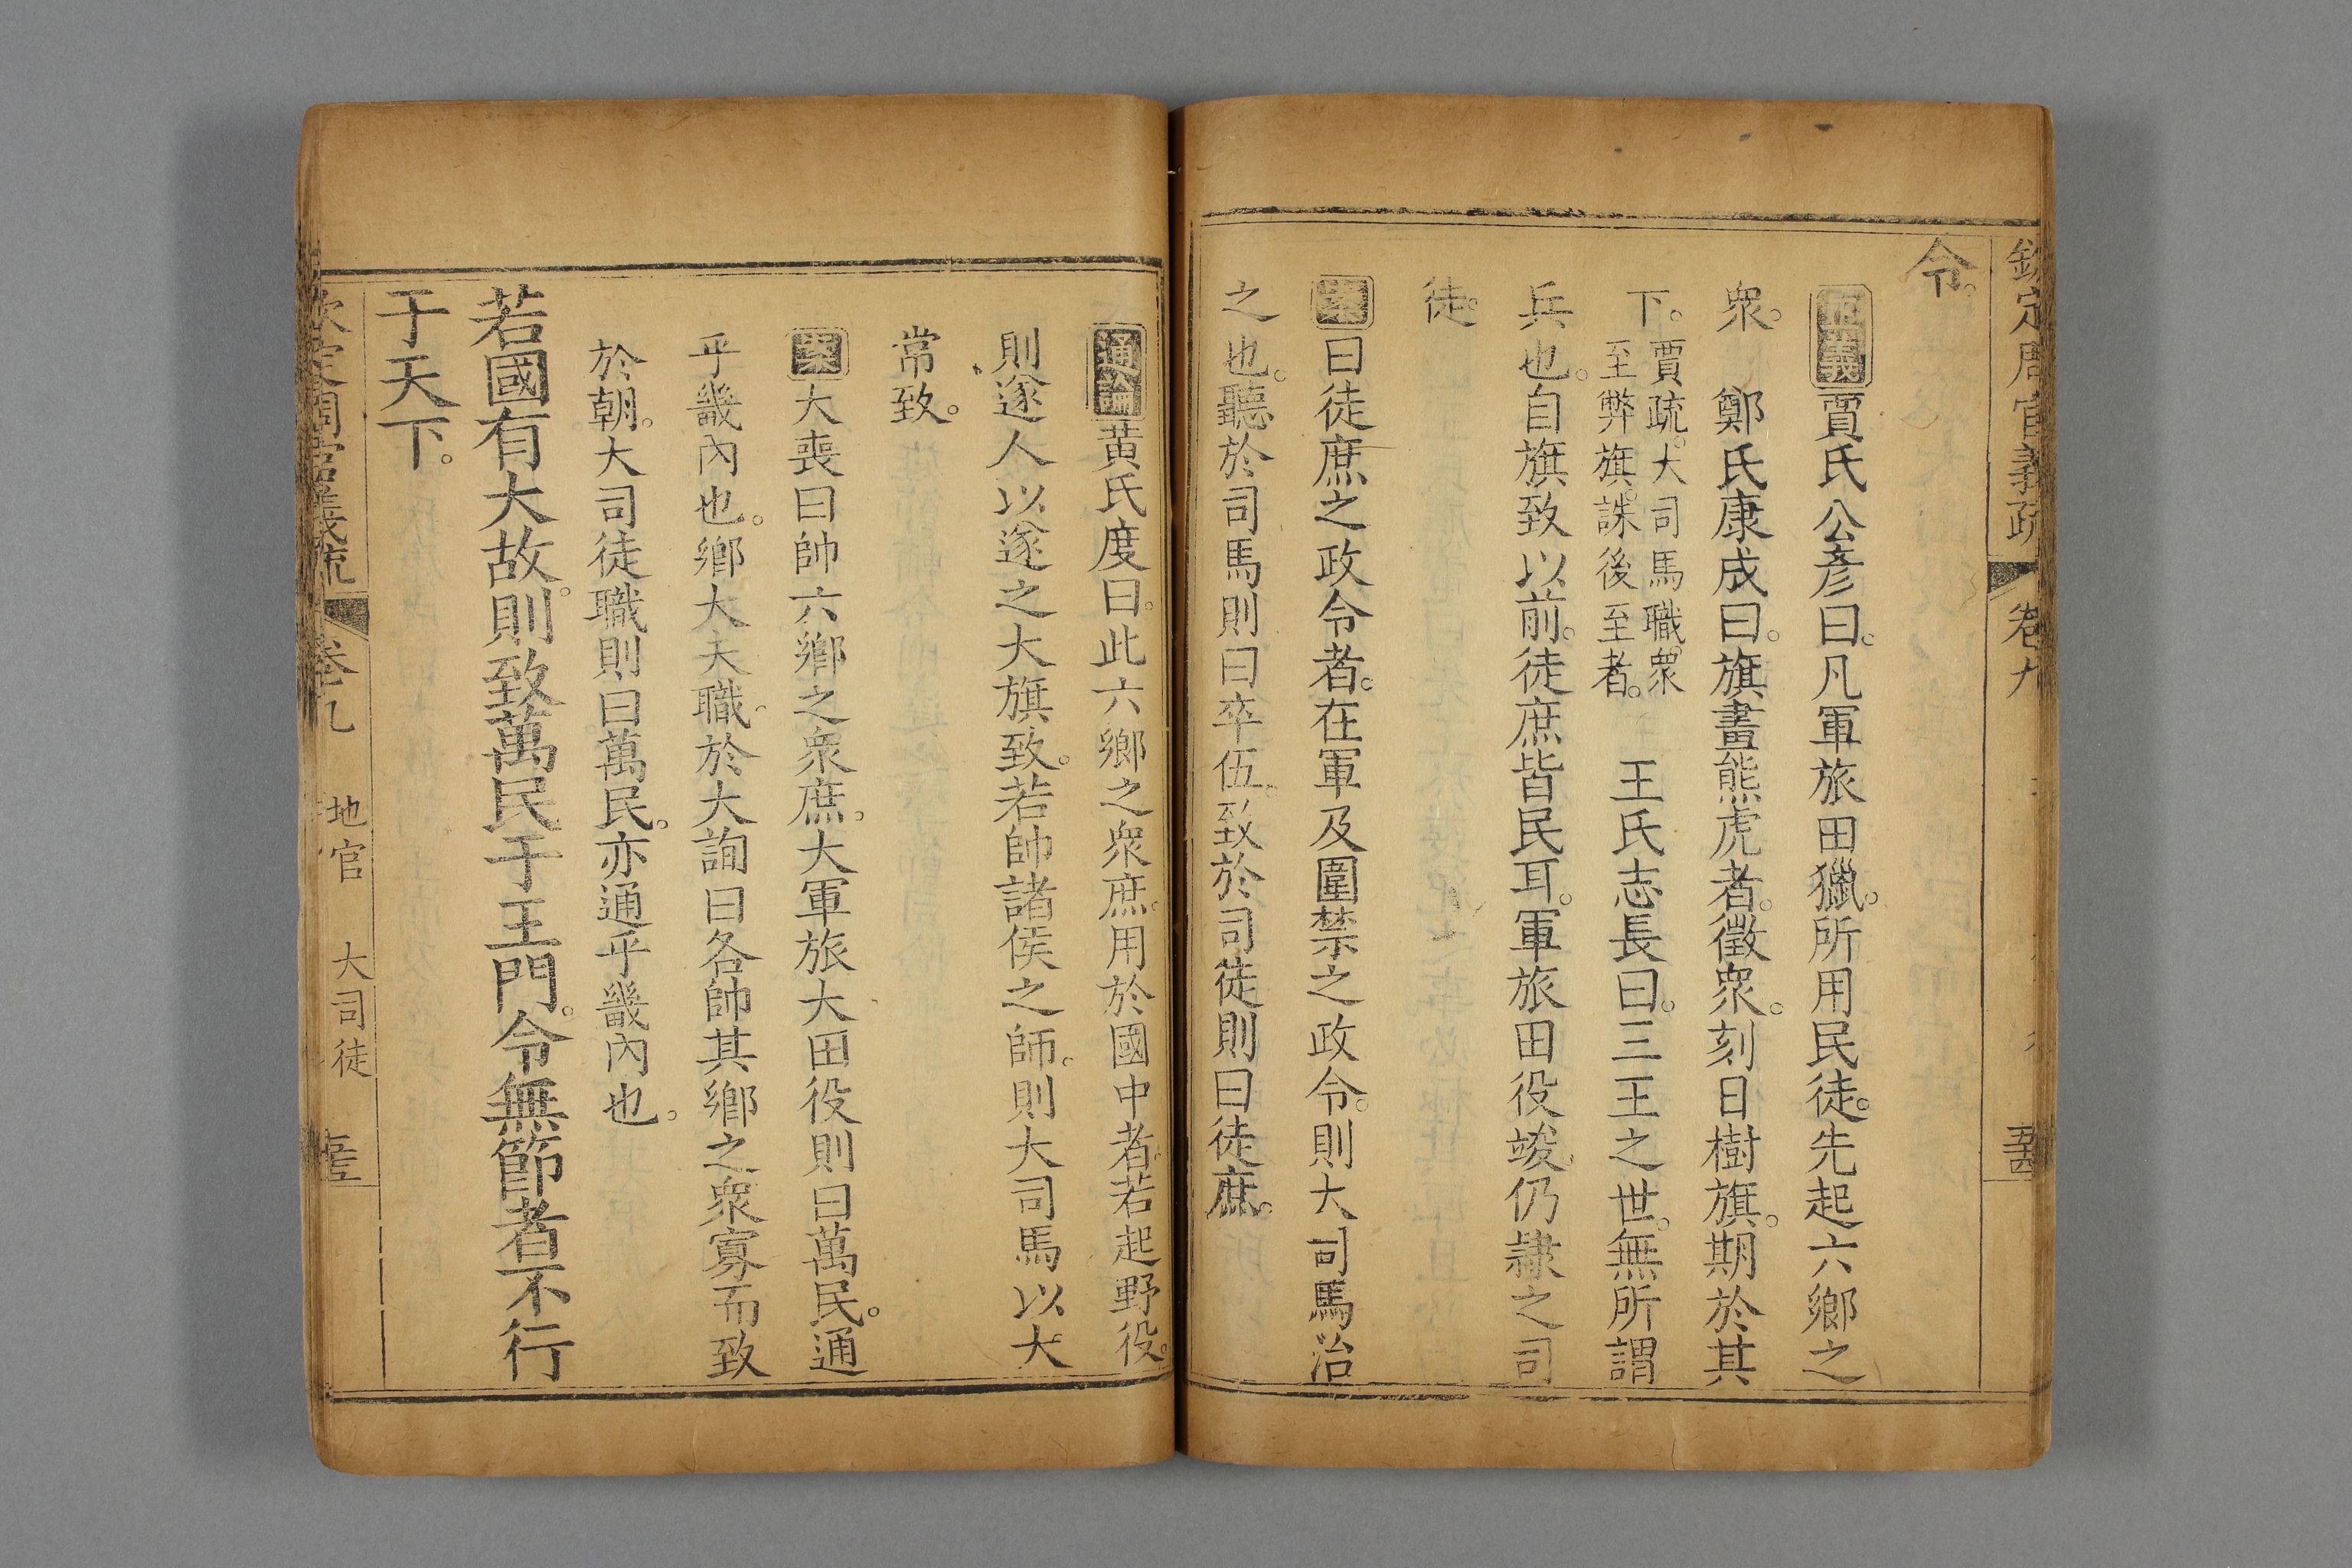 欽定周官義疏 卷九
令。
正義賈氏公彥曰。凡軍旅田獵。所用民徒。先起六鄉之
衆。 鄭氏康成曰。旗畫熊虎者。徵衆。刻日樹旗。期於其
下。賈疏。大司馬職。衆至弊旗。誅後至者。 王氏志長曰。三王之世。無所謂
兵也。自旗致以前。徒庶皆民耳。軍旅田役竣。仍隸之司
徒。
案曰徒庶之政令者。在軍及圍禁之政令。則大司馬治
之也。聽於司馬則曰卒伍。致於司徒則曰徒庶。
通論黃氏度曰。此六鄉之衆庶。用於國中者若起野役。
則遂人以遂之大旗致。若帥諸侯之師。則大司馬以大
常致。
案大喪曰帥六鄉之衆庶。大軍旅大田役則曰萬民。通
乎畿內也。鄉大夫職。於大詢曰各帥其鄉之衆寡而致
於朝。大司徒職則曰萬民。亦通乎畿內也。
若國有大故。則致萬民于王門。令無節者不行
于天下。
欽定周官義疏 卷九 地官 大司徒